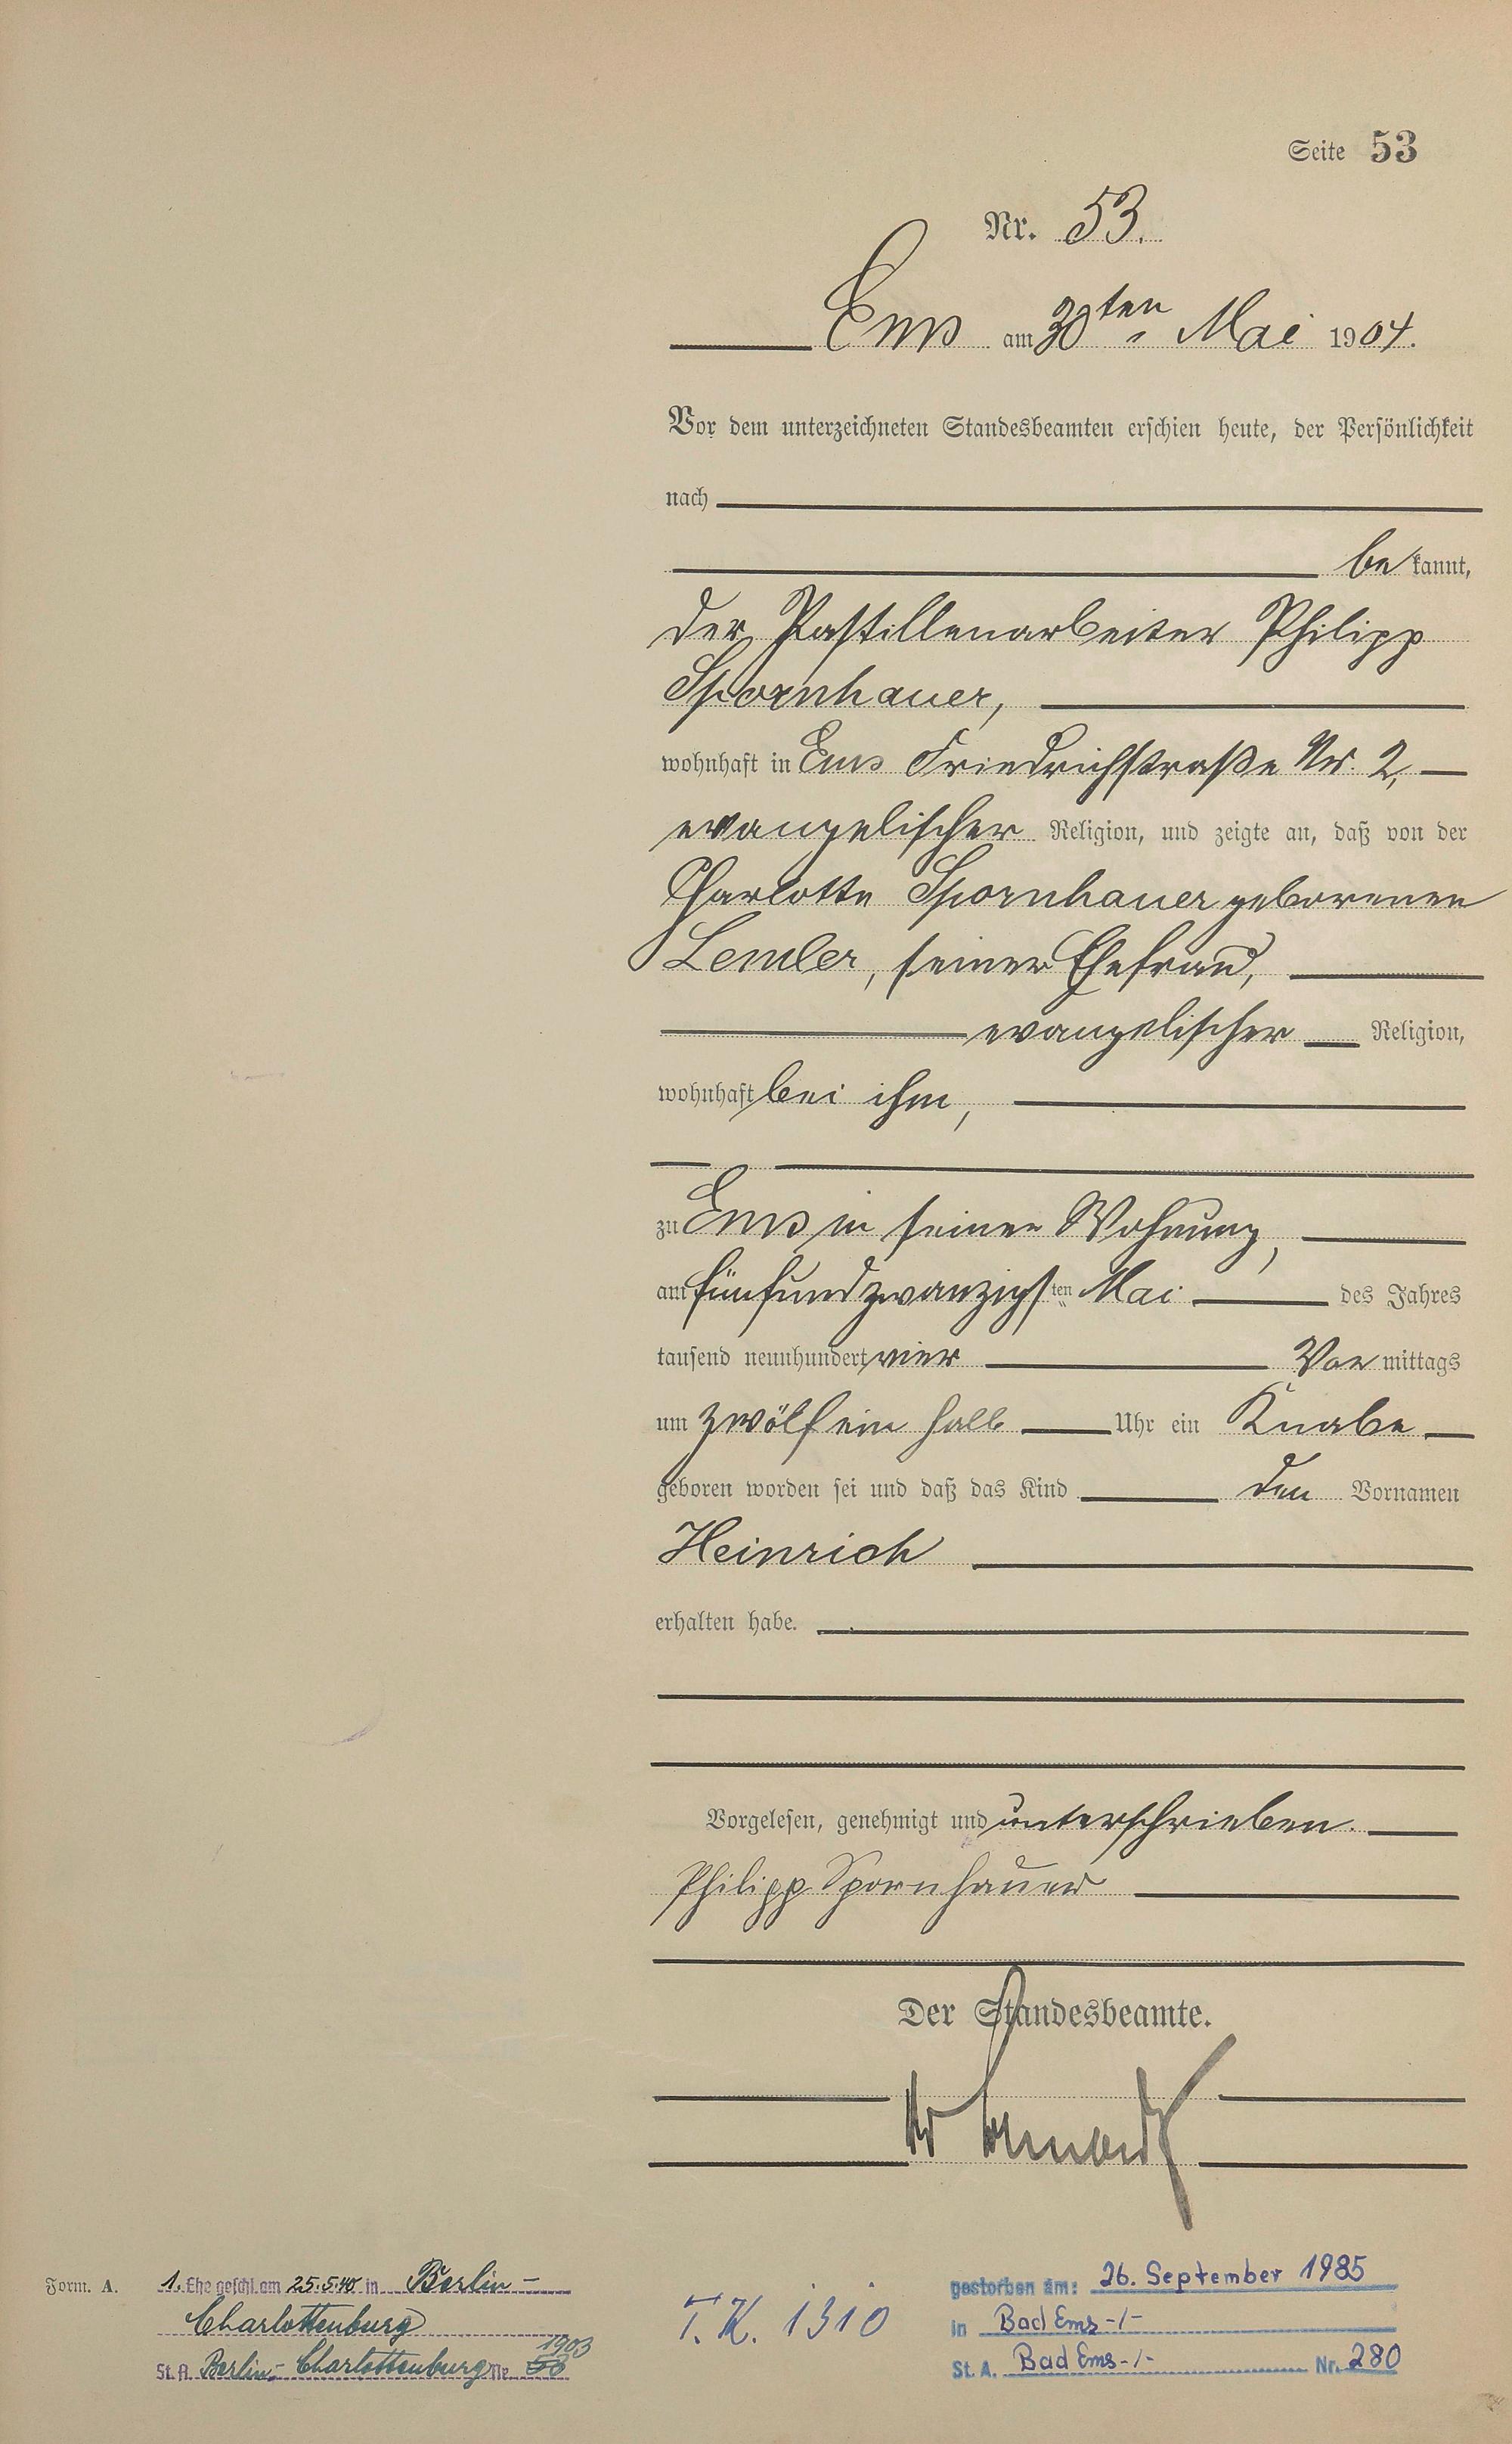 Seite 53
Nr. 53.
Ems am 30ten Mai 1904.
Vor dem unterzeichneten Standesbeamten erschien heute, der Persönlichkeit
nach
be kannt,
der Pastillenarbeiter Philipp
Spornhauer,
wohnhaft in Ems Friedrichstraße Nr. 2,
evangelischer Religion, und zeigte an, daß von der
Charlotte Spornhauer geborenen
Lemler, seiner Ehefrau,
evangelischer Religion,
wohnhaft bei ihm,
zu Ems in seiner Wohnung,
am fünfundzwanzigsten Mai des Jahres
tausend neunhundert vier Vor mittags
um zwölf ein halb Uhr ein Knabe
geboren worden sei und daß das Kind den Vornamen
Heinrich
erhalten habe.
Vorgelesen, genehmigt und unterschrieben.
Philipp Spornhauer
Der Standesbeamte.
Form. A.
1. Ehe geschl. am 25.5.40 in Berlin-
Charlottenburg
1903
St. A. Berlin-Charlottenburg Nr. 53
T. K. 1310
gestorben am: 26. September 1985
in Bad Ems -/-
St. A. Bad Ems -/- Nr. 280